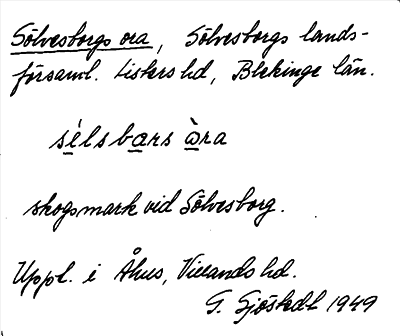 Sölvesborgs ora, Sölvesborgs lands-
församl. Listers hd, Blekinge län.
sélsbars àra
skogsmark vid Sölvesborg.
Uppl. i Åhus, Villands hd.
G. Sjöstedt 1949